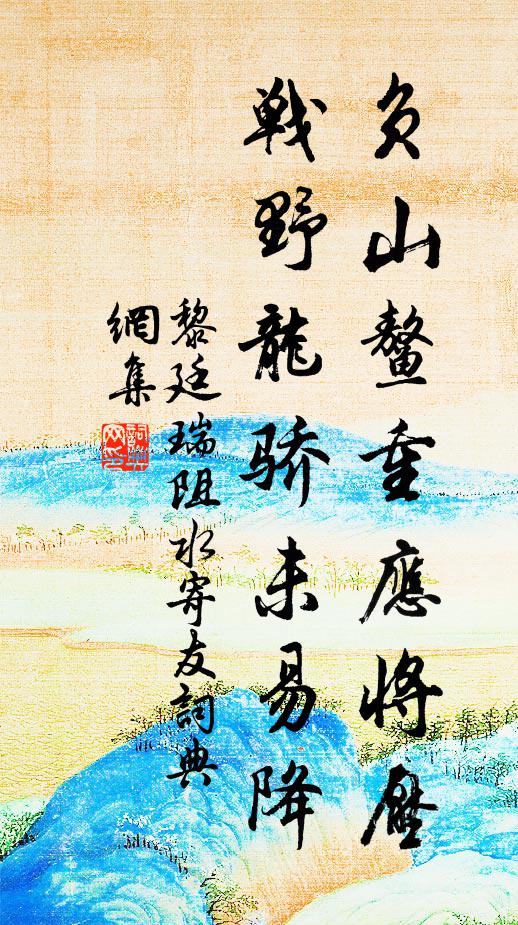 负山鳌重應將壓
戦野龍骄未易降
黎廷瑞阻水寄友詞典
網集